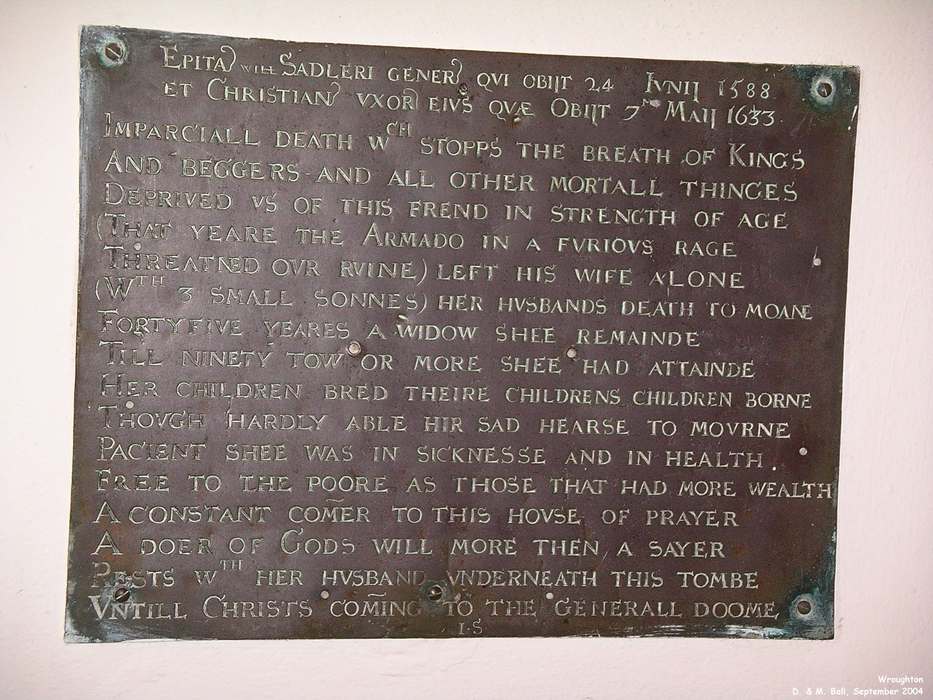 EPITA will SADLERI GENER QVI OBIJT 24 IVNIJ 1588
ET CHRISTIAN VXOR EIVS QVÆ OBIJT 7 MAIJ 1633
IMPARCIALL DEATH Wᶜᴴ STOPPS THE BREATH OF KINGS
AND BEGGERS AND ALL OTHER MORTALL THINGES
DEPRIVED VS OF THIS FREND IN STRENGTH OF AGE
(THAT YEARE THE ARMADO IN A FVRIOVS RAGE
THREATNED OVR RVINE) LEFT HIS WIFE ALONE
(Wᵀᴴ 3 SMALL SONNES) HER HVSBANDS DEATH TO MOANE
FORTYFIVE YEARES A WIDOW SHEE REMAINDE
TILL NINETY TOW OR MORE SHEE HAD ATTAINDE
HER CHILDREN BRED THEIRE CHILDRENS CHILDREN BORNE
THOVGH HARDLY ABLE HIR SAD HEARSE TO MOVRNE
PACIENT SHEE WAS IN SICKNESSE AND IN HEALTH.
FREE TO THE POORE AS THOSE THAT HAD MORE WEALTH
A CONSTANT COM̄ER TO THIS HOVSE OF PRAYER
A DOER OF GODS WILL MORE THEN A SAYER
RESTS Wᵀᴴ HER HVSBAND VNDERNEATH THIS TOMBE
VNTILL CHRISTS COM̄ING TO THE GENERALL DOOME
I·S
Wroughton
D. & M. Ball, September 2004